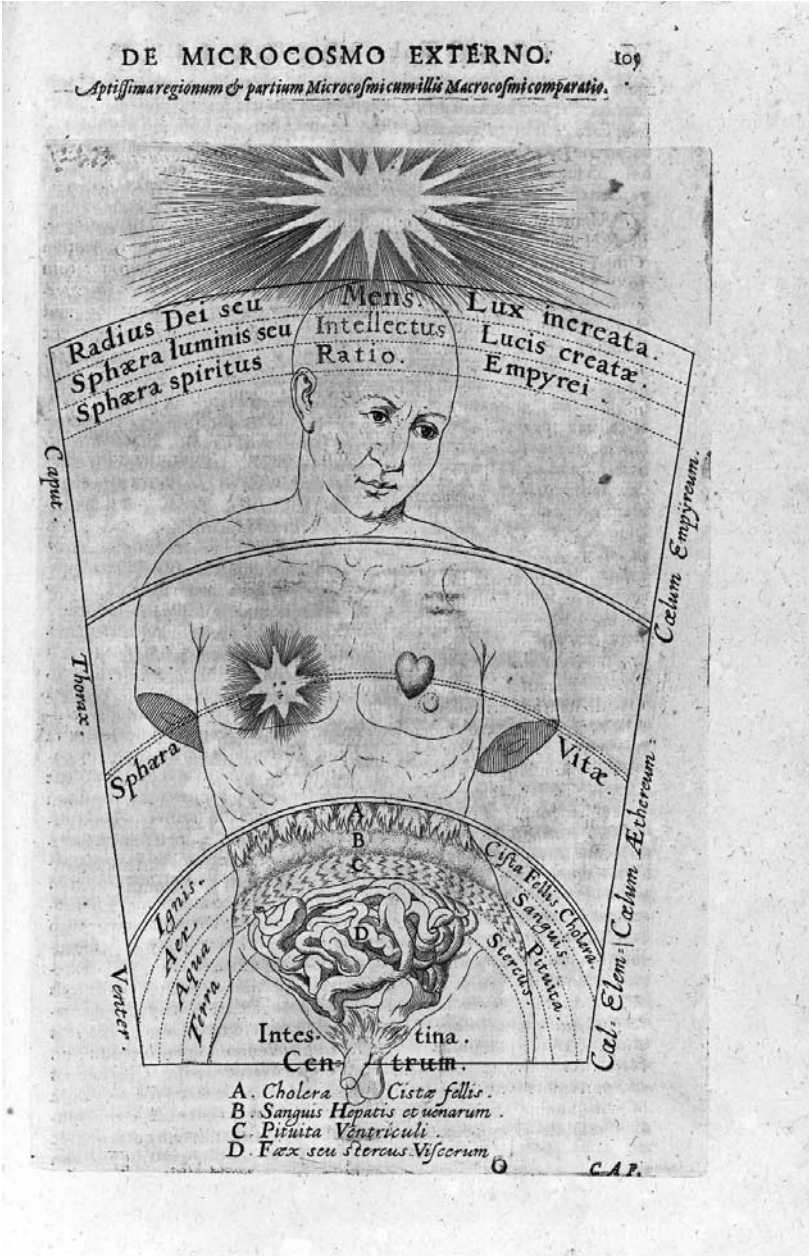 DE MICROCOSMO EXTERNO. 109
Aptiſſima regionum & partium Microcoſmi cum illis Macrocoſmi comparatio.
Radius Dei seu Mens. Lux increata.
Sphæra luminis seu Intellectus Lucis creatæ.
Sphæra spiritus Ratio. Empyrei.
Caput.
Cœlum Empÿreum.
Thorax.
Sphæra Vitæ.
Cœlum Æthereum:
A
B
C
D
Ignis.
Aer
Aqua
Terra
Ciſta Fellis. Cholera
Sanguis.
Pituita.
Stercus.
Venter.
Cœl. Elem:
Intes- tina.
Cen- trum.
A. Cholera Cistæ fellis.
B. Sanguis Hepatis et uenarum.
C. Pituita Ventriculi.
D Fæx seu stercus Viſcerum
O CAP.